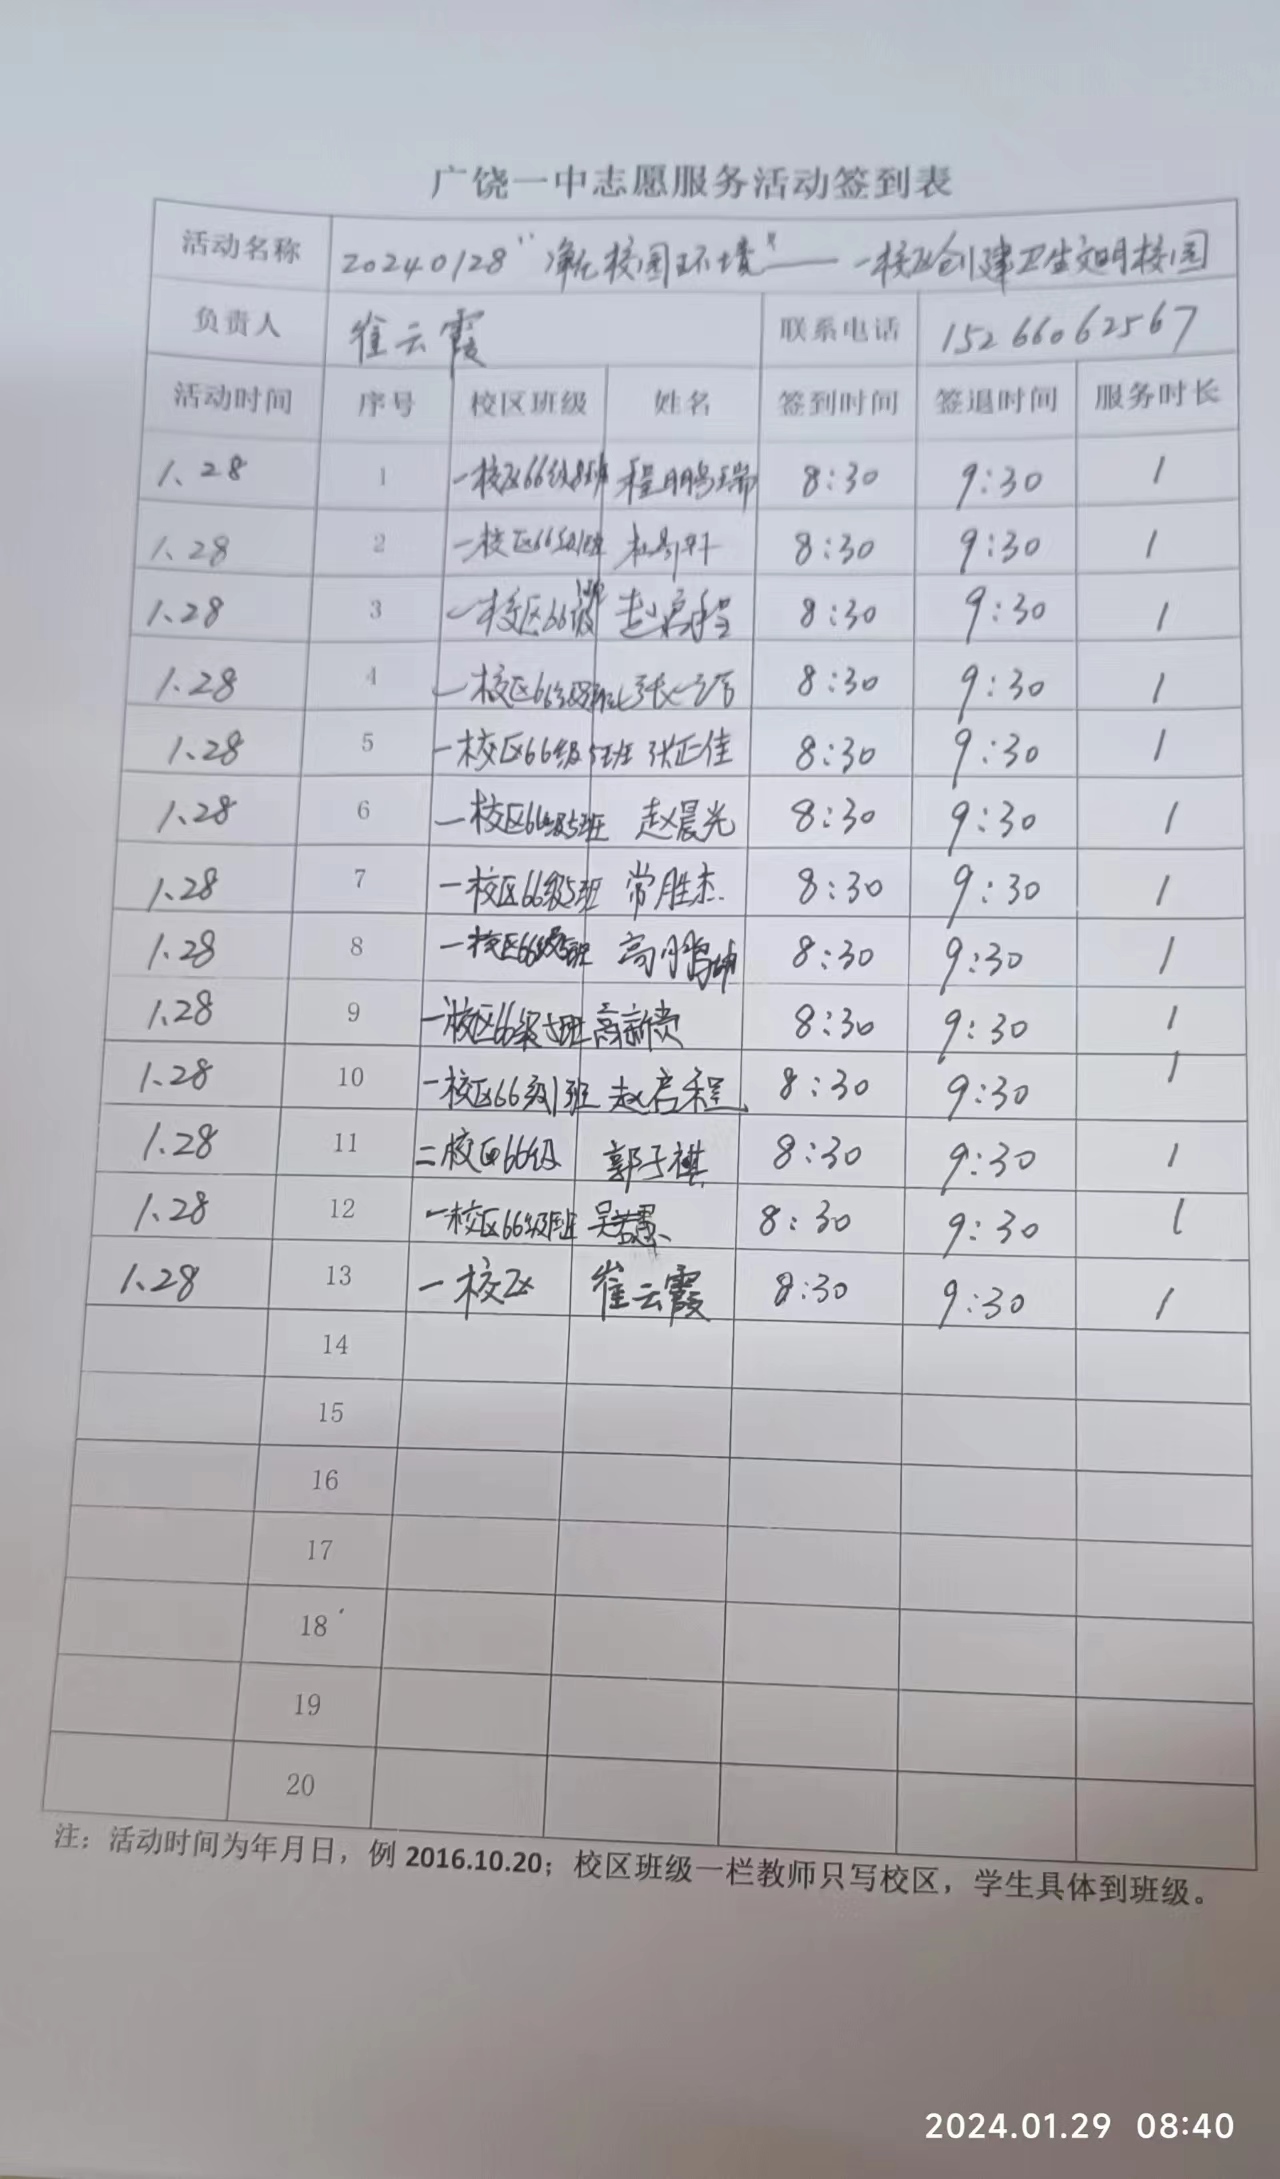 广饶一中志愿服务活动签到表
活动名称 20240128“净化校园环境”——一校区创建卫生文明校园
负责人 崔云霞 联系电话 15266062567
活动时间 序号 校区班级 姓名 签到时间 签退时间 服务时长
1.28 1 一校区66级8班 程鹏瑞 8:30 9:30 1
1.28 2 一校区66级 8:30 9:30 1
1.28 3 一校区66级 赵启程 8:30 9:30 1
1.28 4 一校区66级 张 8:30 9:30 1
1.28 5 一校区66级5班 张正佳 8:30 9:30 1
1.28 6 一校区66级5班 赵晨光 8:30 9:30 1
1.28 7 一校区66级5班 常胜杰 8:30 9:30 1
1.28 8 一校区66级5班 高鹏坤 8:30 9:30 1
1.28 9 一校区66级5班 高新贵 8:30 9:30 1
1.28 10 一校区66级1班 赵启程 8:30 9:30 1
1.28 11 二校区66级 郭子祺 8:30 9:30 1
1.28 12 一校区66级 班 吴 8:30 9:30 1
1.28 13 一校区 崔云霞 8:30 9:30 1
14
15
16
17
18
19
20
注：活动时间为年月日，例 2016.10.20；校区班级一栏教师只写校区，学生具体到班级。
2024.01.29 08:40